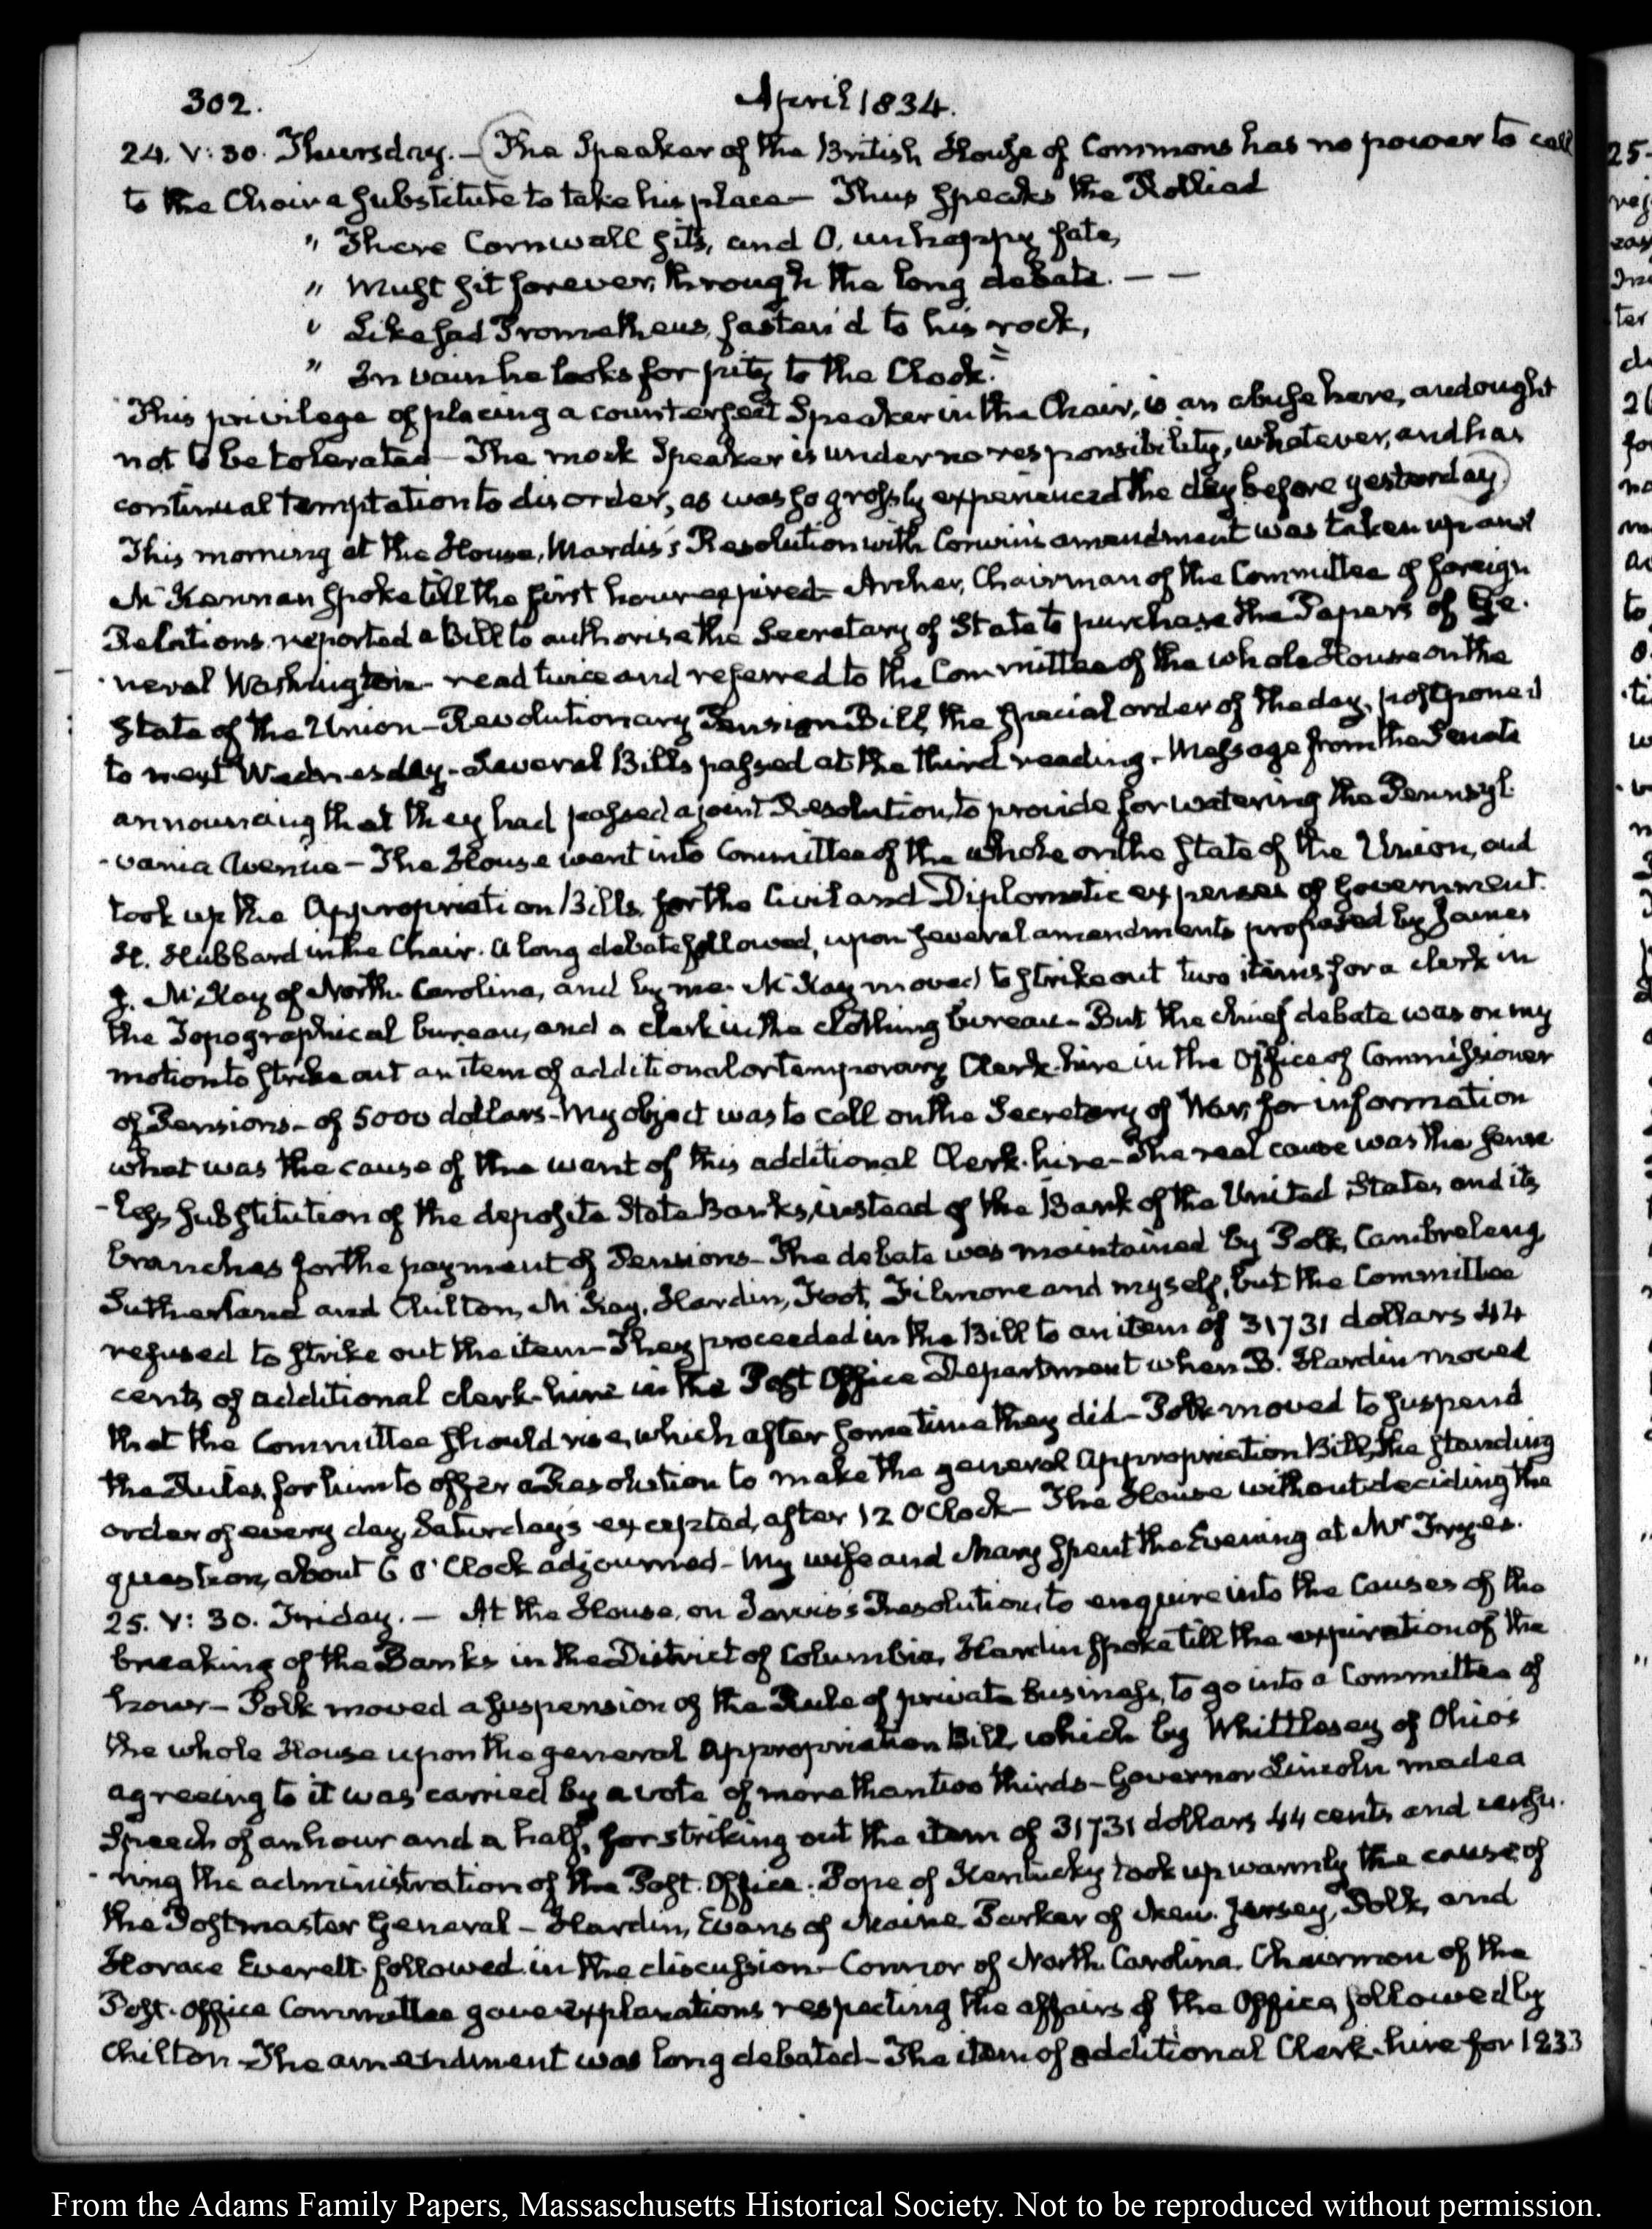 302. April 1834.
24. V: 30. Thursday. — The Speaker of the British House of Commons has no power to call
to the Chair a substitute to take his place — Thus speaks the Rolliad
" There Cornwall sits, and O, unhappy fate,
" Must sit forever, through the long debate. — —
" Like sad Prometheus, fasten'd to his rock,
" In vain he looks for pity to the Clock."
This privilege of placing a counterfeit Speaker in the Chair, is an abuse here, and ought
not to be tolerated — The mock Speaker is under no responsibility, whatever, and has
continual temptation to disorder, as was so grossly experienced the day before yesterday.
This morning at the House, Mardis's Resolution with Corwin's amendment was taken up and
McKennan spoke till the first hour expired — Archer, Chairman of the Committee of foreign
Relations reported a Bill to authorise the Secretary of State to purchase the Papers of Ge-
-neral Washington — read twice and referred to the Committee of the whole House on the
State of the Union — Revolutionary Pension Bill, the special order of the day, postponed
to next Wednesday — Several Bills passed at the third reading — Message from the Senate
announcing that they had passed a joint Resolution, to provide for watering the Pennsyl-
-vania Avenue — The House went into Committee of the whole on the state of the Union, and
took up the Appropriation Bills, for the Civil and Diplomatic expenses of Government.
H. Hubbard in the Chair. A long debate followed, upon several amendments proposed by James
J. McKay of North Carolina, and by me. McKay moved to strike out two items, for a clerk in
the Topographical bureau, and a clerk in the clothing bureau — But the chief debate was on my
motion to strike out an item of additional or temporary Clerk-hire in the Office of Commissioner
of Pensions — of 5000 dollars — My object was to call on the Secretary of War, for information
what was the cause of the want of this additional Clerk-hire — The real cause was the sense
-less substitution of the deposite State Banks, instead of the Bank of the United States, and its
branches for the payment of Pensions — The debate was maintained by Polk, Cambreleng,
Sutherland and Chilton, McKay, Hardin, Foot, Filmore and myself, but the Committee
refused to strike out the item — They proceeded in the Bill to an item of 31731 dollars 44
cents of additional clerk-hire in the Post Office Department when B. Hardin moved
that the Committee should rise, which after some time they did — Polk moved to suspend
the Rules, for him to offer a Resolution to make the general Appropriation Bill, the standing
order of every day, Saturdays excepted, after 12 O'Clock — The House without deciding the
question, about 6 O'Clock adjourned — My wife and Mary spent the Evening at Mr Frye's.
25. V: 30. Friday. — At the House, on Jarvis's Resolution, to enquire into the Causes of the
breaking of the Banks in the District of Columbia, Hardin spoke till the expiration of the
hour — Polk moved a suspension of the Rule of private business, to go into a Committee of
the whole House upon the general Appropriation Bill, which by Whittlesey of Ohio's
agreeing to it was carried by a vote of more than two thirds — Governor Lincoln made a
Speech of an hour and a half, for striking out the item of 31731 dollars 44 cents and censu-
-ring the administration of the Post-Office. Pope of Kentucky took up warmly the cause of
the Postmaster General — Hardin, Evans of Maine, Parker of New-Jersey, Polk, and
Horace Everett followed in the discussion — Connor of North Carolina, Chairman of the
Post-Office Committee gave explanations respecting the affairs of the Office, followed by
Chilton — The amendment was long debated — The item of additional Clerk-hire for 1833
From the Adams Family Papers, Massachusetts Historical Society. Not to be reproduced without permission.